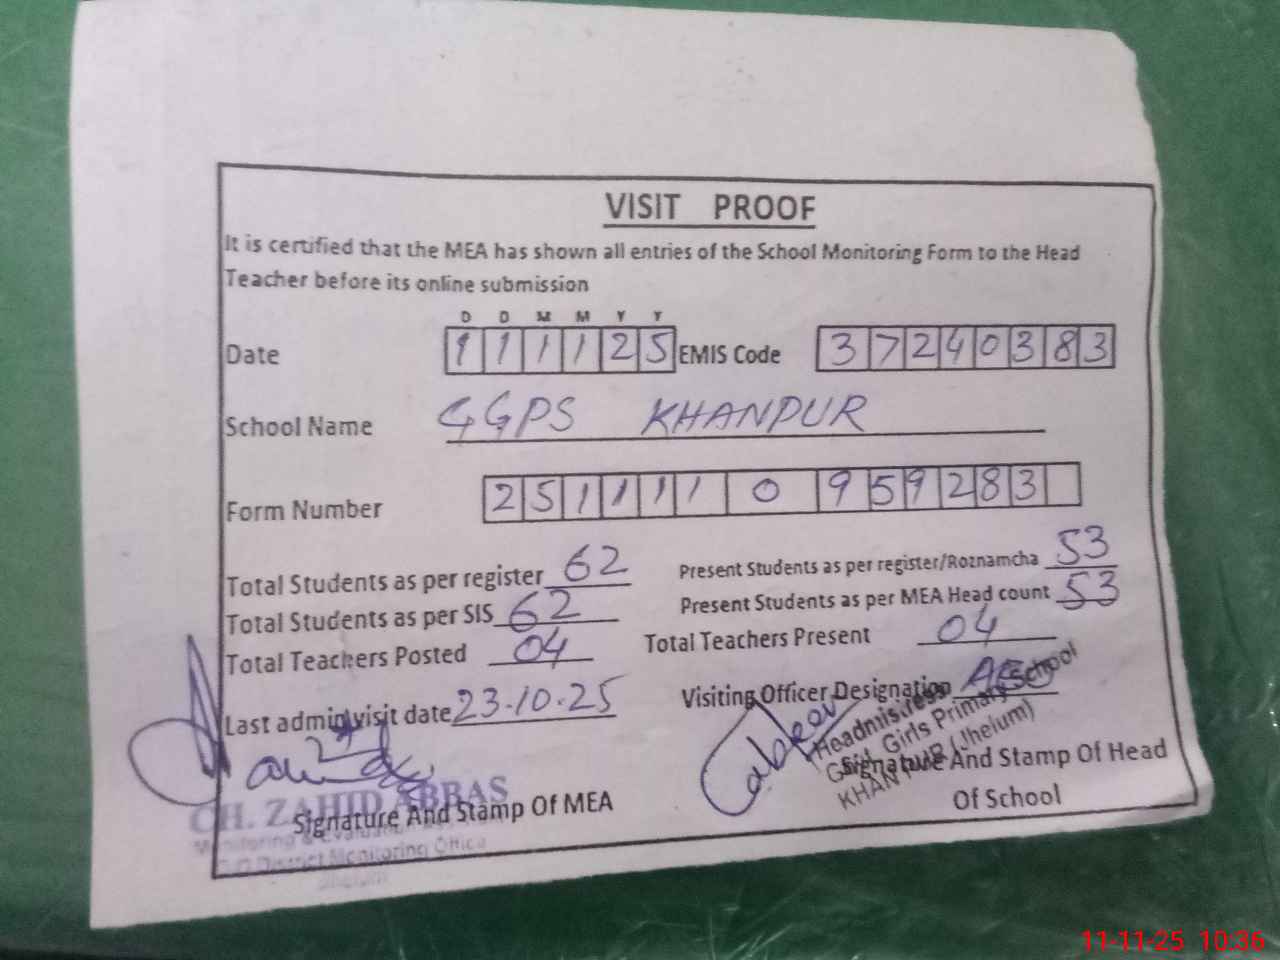 VISIT PROOF
It is certified that the MEA has shown all entries of the School Monitoring Form to the Head
Teacher before its online submission
D D M M Y Y
Date 1 1 1 1 2 5 EMIS Code 3 7 2 4 0 3 8 3
School Name GGPS KHANPUR
Form Number 2 5 1 1 1 1 0 9 5 9 2 8 3
Total Students as per register 62 Present Students as per register/Roznamcha 53
Total Students as per SIS 62 Present Students as per MEA Head count 53
Total Teachers Posted 04 Total Teachers Present 04
Last admin visit date 23-10-25 Visiting Officer Designation AEO
Headmistress
Govt. Girls Primary School
KHANPUR (Jhelum)
CH. ZAHID ABBAS
Signature And Stamp Of MEA Signature And Stamp Of Head
Of School
Monitoring & Evaluation
District Monitoring Office
Jhelum
11-11-25 10:36